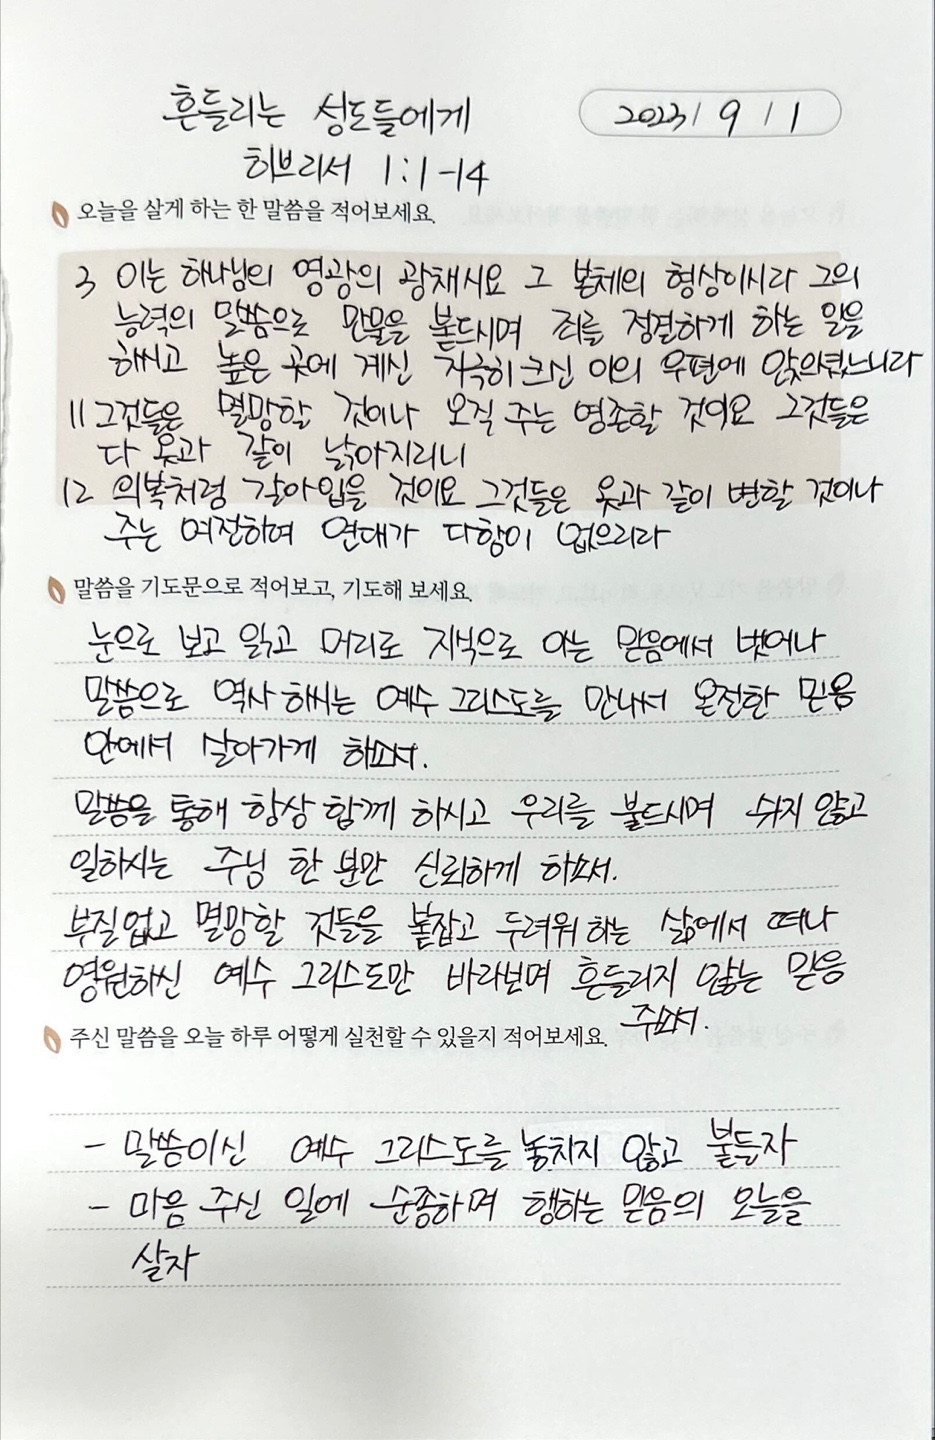 흔들리는 성도들에게
2023 / 9 / 1
히브리서 1:1-14
오늘을 살게 하는 한 말씀을 적어보세요.
3 이는 하나님의 영광의 광채시요 그 본체의 형상이시라 그의
능력의 말씀으로 만물을 붙드시며 죄를 정결하게 하는 일을
하시고 높은 곳에 계신 지극히 크신 이의 우편에 앉으셨느니라
11 그것들은 멸망할 것이나 오직 주는 영존할 것이요 그것들은
다 옷과 같이 낡아지리니
12 의복처럼 갈아입을 것이요 그것들은 옷과 같이 변할 것이나
주는 여전하여 연대가 다함이 없으리라
말씀을 기도문으로 적어보고, 기도해 보세요.
눈으로 보고 읽고 머리로 지식으로 아는 믿음에서 벗어나
말씀으로 역사하시는 예수 그리스도를 만나서 온전한 믿음
안에서 살아가게 하소서.
말씀을 통해 항상 함께 하시고 우리를 붙드시며 쉬지 않고
일하시는 주님 한 분만 신뢰하게 하소서.
부질없고 멸망할 것들을 붙잡고 두려워하는 삶에서 떠나
영원하신 예수 그리스도만 바라보며 흔들리지 않는 믿음
주소서.
주신 말씀을 오늘 하루 어떻게 실천할 수 있을지 적어보세요.
- 말씀이신 예수 그리스도를 놓치지 않고 붙들자
- 마음 주신 일에 순종하며 행하는 믿음의 오늘을
살자